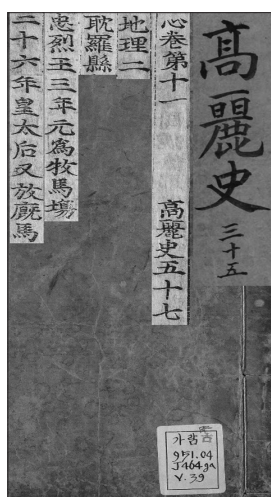 高麗史 三十五
志卷第十一 高麗史五十七
地理二
耽羅縣
忠烈王三年元爲牧馬場
二十六年皇太后又放廐馬
가람古
951.04
J464ga
V.39